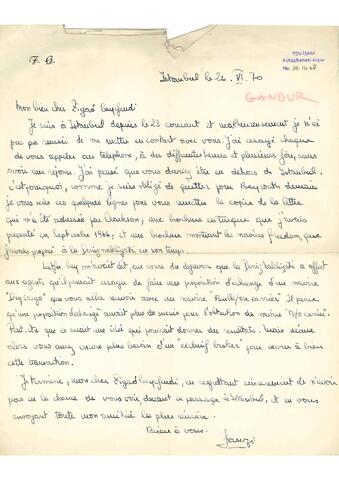 F. G.
TOVİSAM
Kütüphanesi Arşivi
No
Istanbul le 26. VI. 70
GANDUR
Mon bien cher Ziyad beyefendi
Je suis à Istanbul depuis le 23 courant et malheureusement je n'ai
pas pu réussi de me mettre en contact avec vous. J'ai essayé chaque
de vous appeler au téléphone, à des différentes heures et plusieurs fois, sans
avoir une réponse. J'ai pensé que vous devriez être en dehors de Istanbul.
c'est pourquoi, comme je suis obligé de quitter pour Beyrouth demain
je vous écris ces quelques lignes pour vous remettre la copie de la lettre
qui m'a été adressée par Clarkson, une brochure en turque que j'avais
présenté en Septembre 1966, et une brochure montrant les navires freedom, que
j'avais proposé à la Deniz nakliyati en son temps.
Lutfu bey m'avait dit, au cours du déjeuner que la Deniz nakliyati a offert
aux agents qu'il pensait essayer de faire une proposition d'échange d'un navire
"Dry Cargo" que vous allez recevoir avec un navire Bulk/ore carrier. Il pense
qu'une proposition d'échange avait plus de succès pour l'obtention du navire "O/o carrier".
Peut-être que ce serait une idée qui pourrait donner des résultats. Mais même
alors vous aurez encore plus besoin d'un "exclusif broker" pour mener à bien
cette transaction.
Je termine, mon cher Ziyad beyefendi, en regrettant sincèrement de n'avoir
pas eu la chance de vous voir, durant ce passage à Istanbul, et en vous
envoyant toute mon amitié la plus sincère.
Bien à vous.
Fauzi